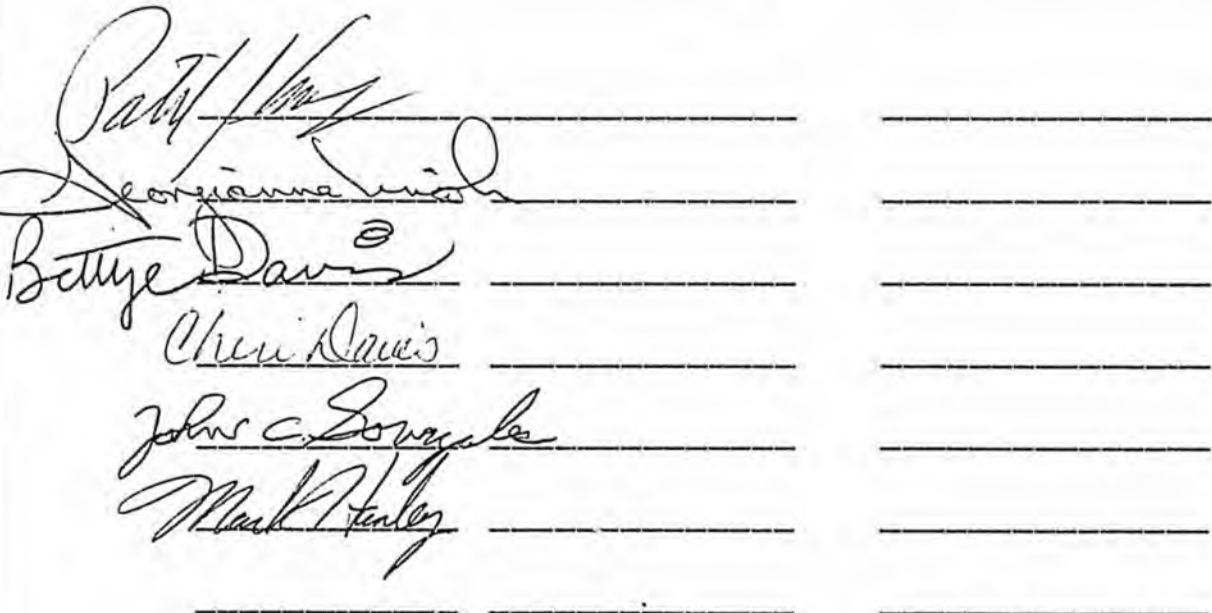 Georgianna Lincoln
Bettye Davis
Cheri Davis
John C. Gonzales
Mark Hanley